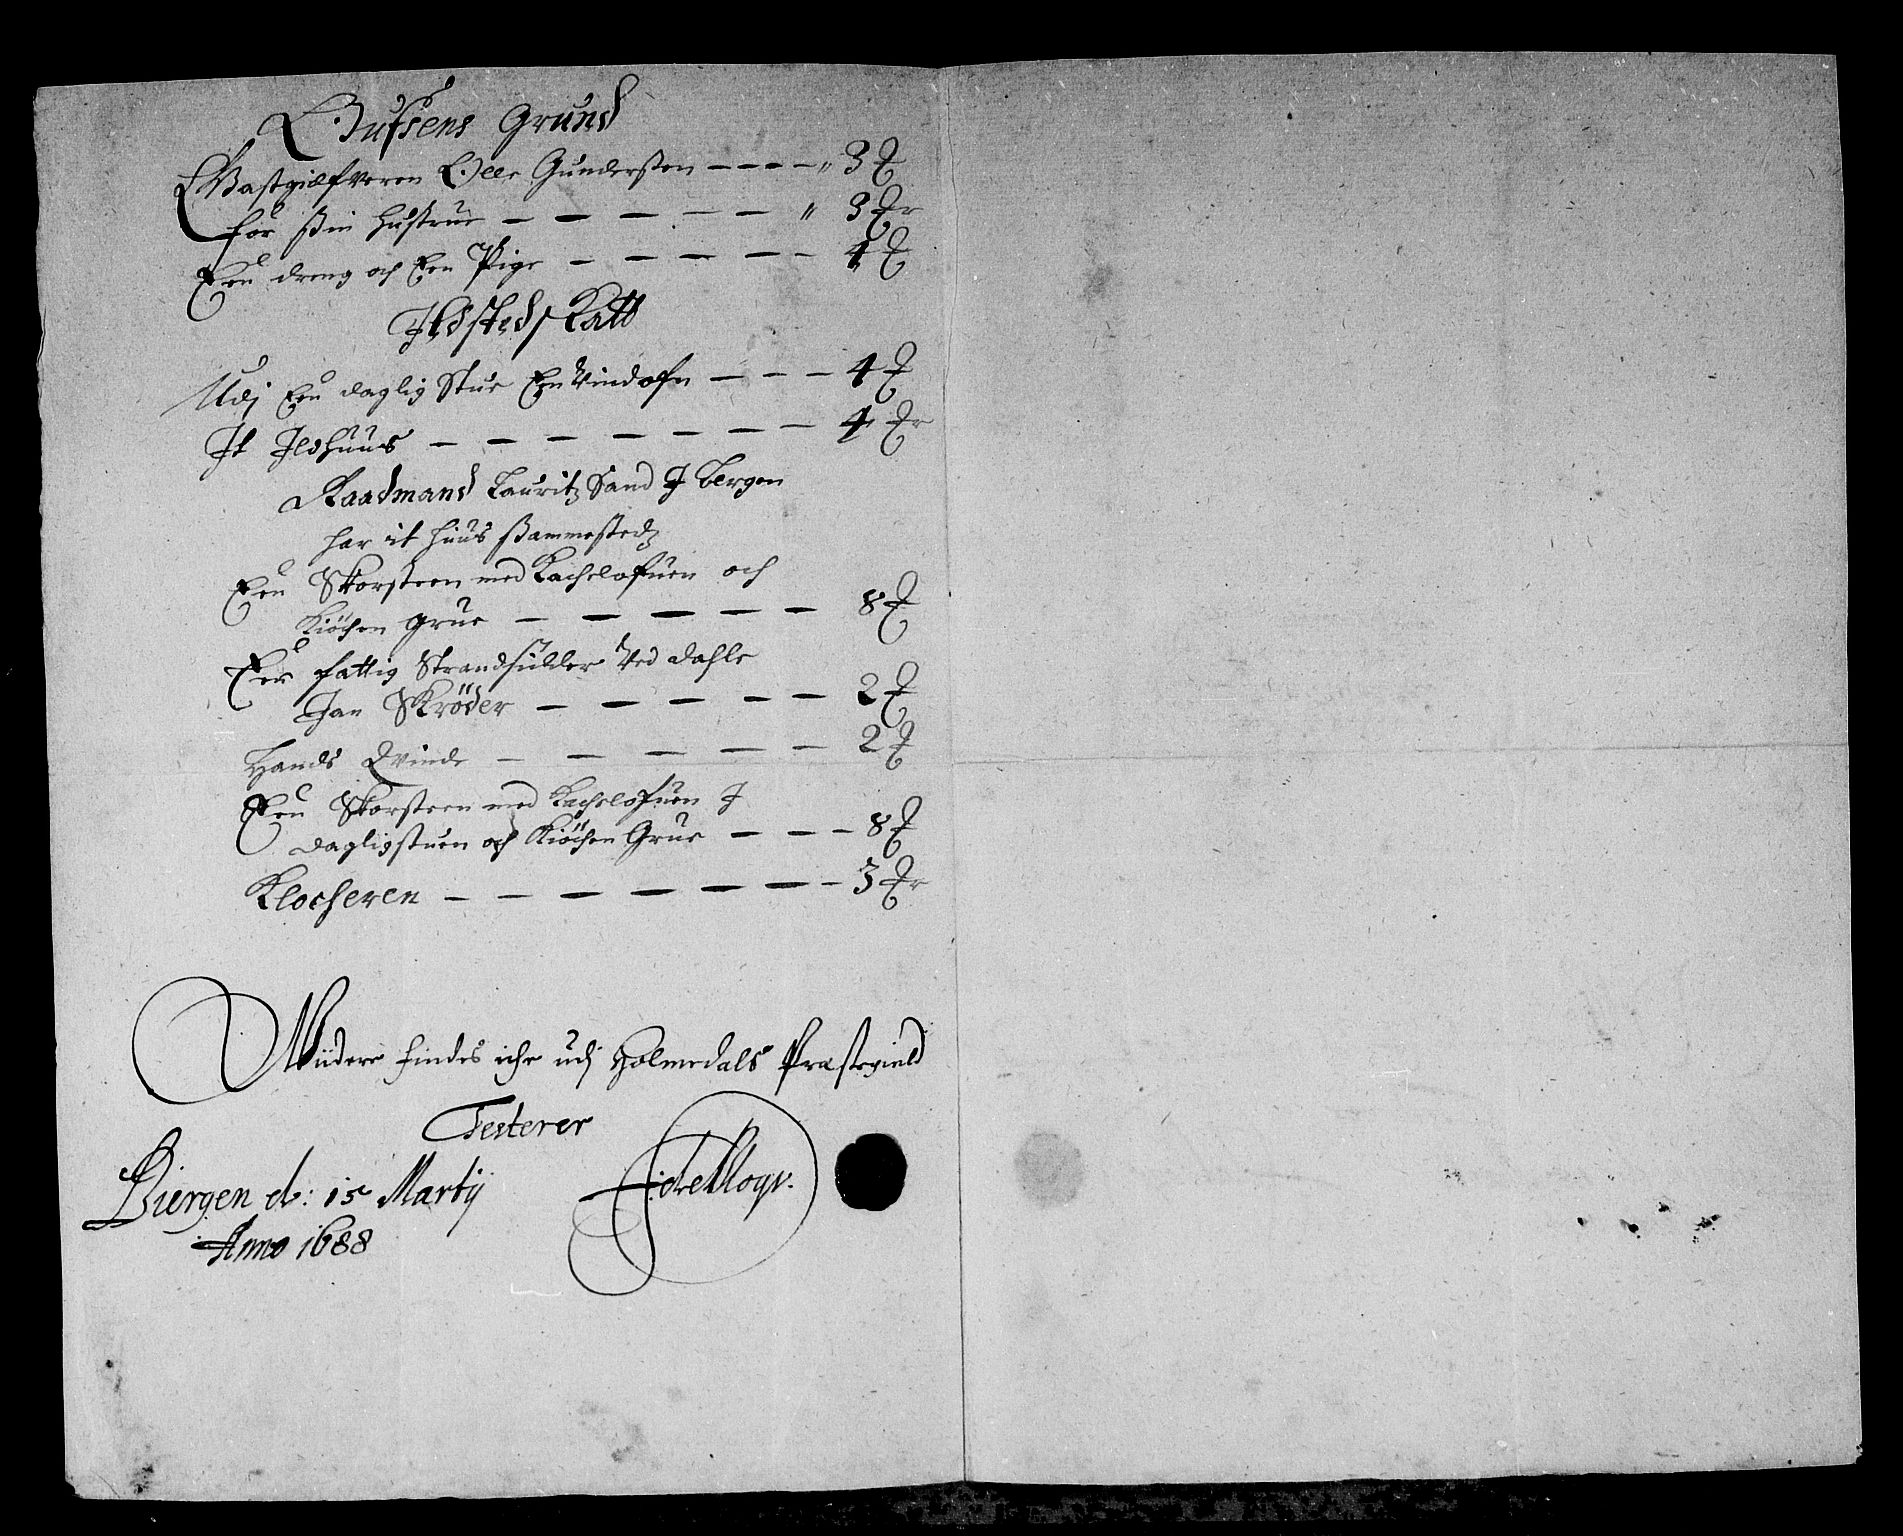 Bufsens Grund
Gastgiefveren Olle Gundersten - - - - " 3 
for sin hustrue - - - - - " 3 
Een dreng och Een Pige - - - - - 4 
Ildsted Skatt
Udj Een daglig Stue Een Vindofn - - - 4 
It Ildhuus - - - - - - - 4 
Raadmand Lauritz Sand J bergen
har it huus sammestedz
Een Skorsteen med Kachelofuen och
Kiöchen grue - - - - - 8 
Een fattig Strandsidder Ved dahle
Jan Skröder - - - - - 2 
Hands Qvinde - - - - - 2 
Een Skorsteen med Kachelofuen J
dagligstuen och Kiöchen Grue - - - 8 
Klocheren - - - - - - - 3 
Viidere findes iche udj Holmedals Præstegield
Testerer
Biergen d: 15 Martij
Anno 1688